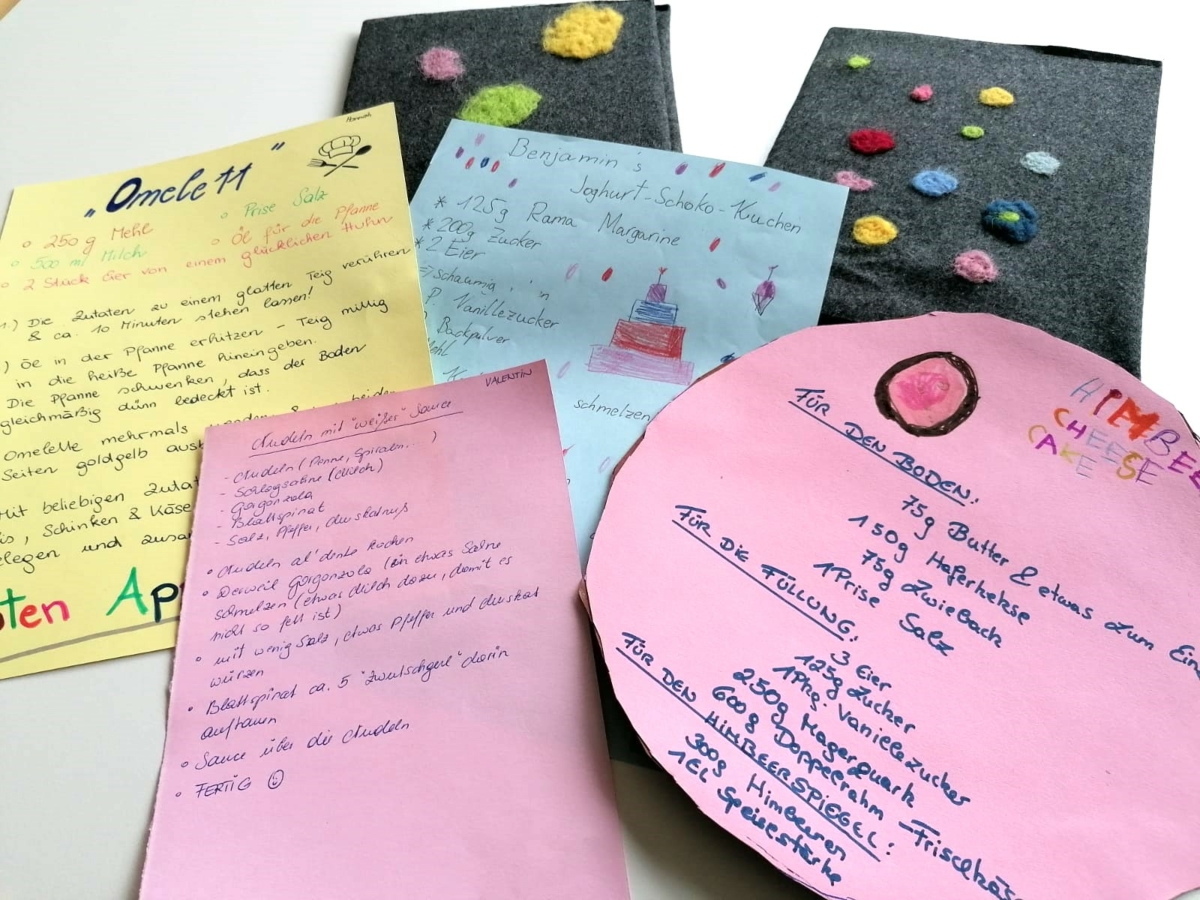 Hannah
"Omelett"
° 250 g Mehl
° 500 ml Milch
° 2 Stück Eier von einem glücklichen Huhn
° Prise Salz
° Öl für die Pfanne
1.) Die Zutaten zu einem glatten Teig verrühren
& ca. 10 Minuten stehen lassen!
) Öe in der Pfanne erhitzen - Teig mittig
in die heiße Pfanne hineingeben.
Die Pfanne schwenken, dass der Boden
gleichmäßig dünn bedeckt ist.
Omelette mehrmals
Seiten goldgelb
Mit beliebigen
, Schinken & Käse
elegen und
ten Ap
Benjamin's
Joghurt-Schoko-Kuchen
* 125g Rama Margarine
* 200g Zucker
* 2 Eier
schaumig
P Vanillezucker
Backpulver
ehl
schmelzen
VALENTIN
Nudeln mit "weißer" Sauce
- Nudeln (Penne, Spiralen...)
- Schlagsahne (Milch)
- Gorgonzola
- Blattspinat
- Salz, Pfeffer, Muskatnuß
° Nudeln al'dente kochen
° Derweil Gorgonzola in etwas Sahne
schmelzen (etwas Milch dazu, damit es
nicht so fett ist)
° mit wenig Salz, etwas Pfeffer und Muskat
würzen
° Blattspinat ca. 5 "Zwutschgerl" darin
auftauen
° Sauce über die Nudeln
° FERTIG ☺
HIMBEE
CHEESE
CAKE
FÜR DEN BODEN:
75g Butter & etwas zum Ein
150g Haferkekse
75g Zwieback
1 Prise Salz
FÜR DIE FÜLLUNG:
3 Eier
125g Zucker
1 Pkg. Vanillezucker
250g Magerquark
600g Doppelrahm-Frischkäs
FÜR DEN HIMBEERSPIEGEL:
300g Himbeeren
1 EL Speisestärke